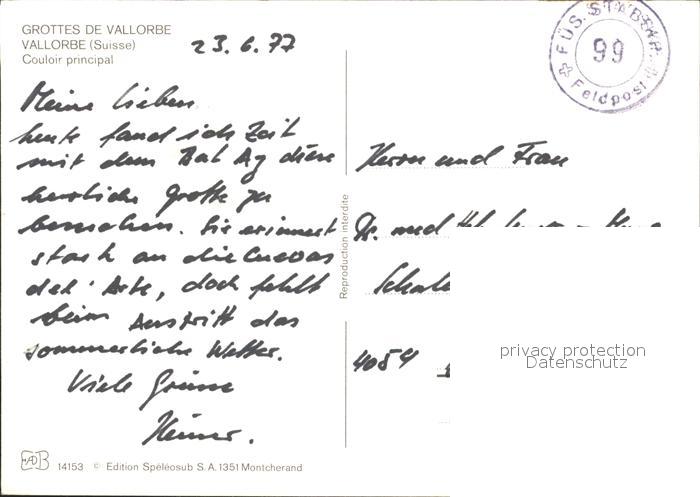 GROTTES DE VALLORBE
VALLORBE (Suisse)
Couloir principal
23.6.77
FÜS. STAB
99
Feldpost
Meine Lieben
heute fand ich Zeit
mit dem Bat Ag diese
herrliche Grotte zu
besuchen. Sie erinnert
stark an die Cuevas
del Arte, doch fehlt
beim Austritt das
sommerliche Wetter.
Viele Grüsse
Herrn und Frau
Dr. med
4054
Reproduction interdite
privacy protection
Datenschutz
14153 © Edition Spéléosub S.A. 1351 Montcherand